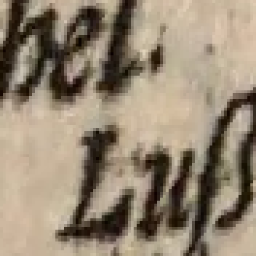 hel.
Luß